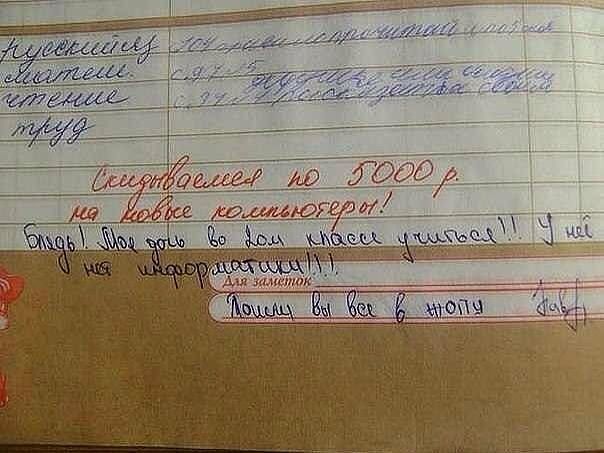 русский яз 104 правило прочитай
матем. с. 97 15
чтение с. 34
труд
Скидываемся по 5000 р.
на новые компьютеры!
Блядь! Моя дочь во 2ом классе учиться!! У неё
нет информатики!!!!
Для заметок
Пошли вы все в жопу